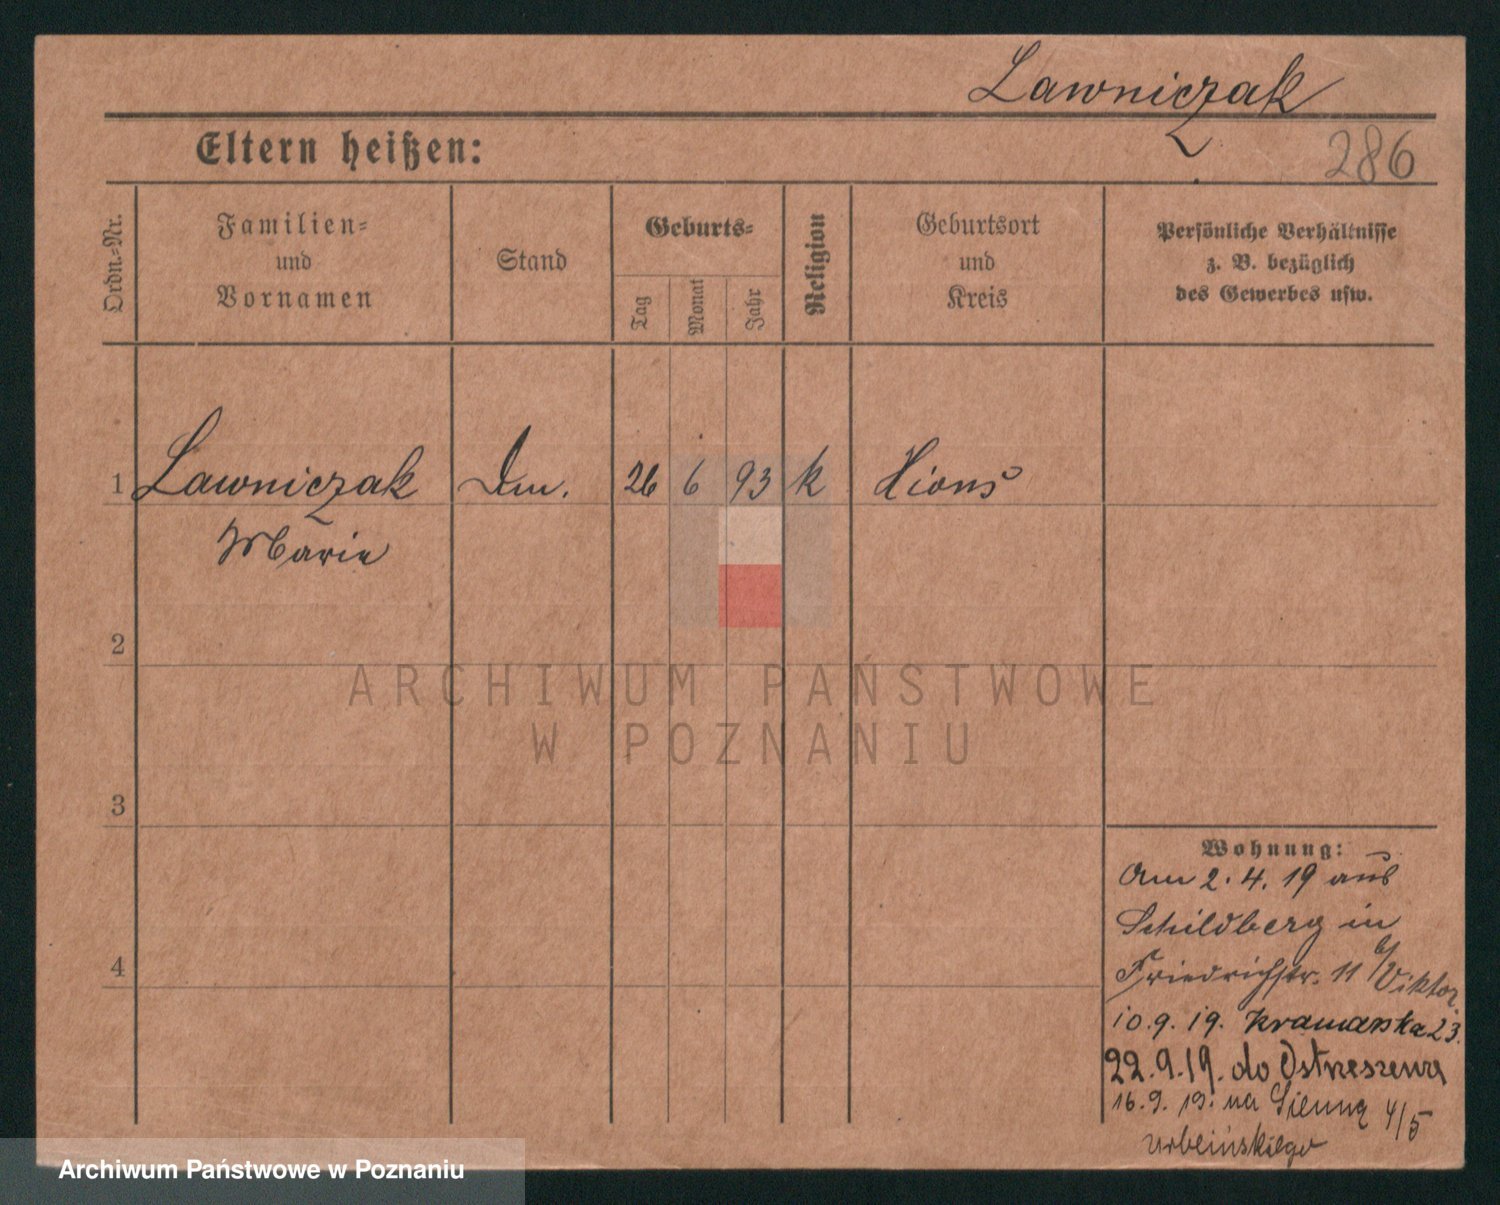 Lawniczak
Eltern heißen:
286
Ordn.-Nr.
Familien-
und
Vornamen
Stand
Geburts-
Tag
Monat
Jahr
Religion
Geburtsort
und
Kreis
Persönliche Verhältnisse
z. B. bezüglich
des Gewerbes usw.
1
Lawniczak
Marie
26
6
93
k
Xions
2
3
4
Wohnung:
Am 2. 4. 19 aus
Schildberg in
Friedrichstr. 11 b/Viktor
10. 9. 19. Kramarska 23.
22. 9. 19. do Ostrzeszowa
16. 9. 19. na Sienną 4/5
ARCHIWUM PAŃSTWOWE
W POZNANIU
Archiwum Państwowe w Poznaniu